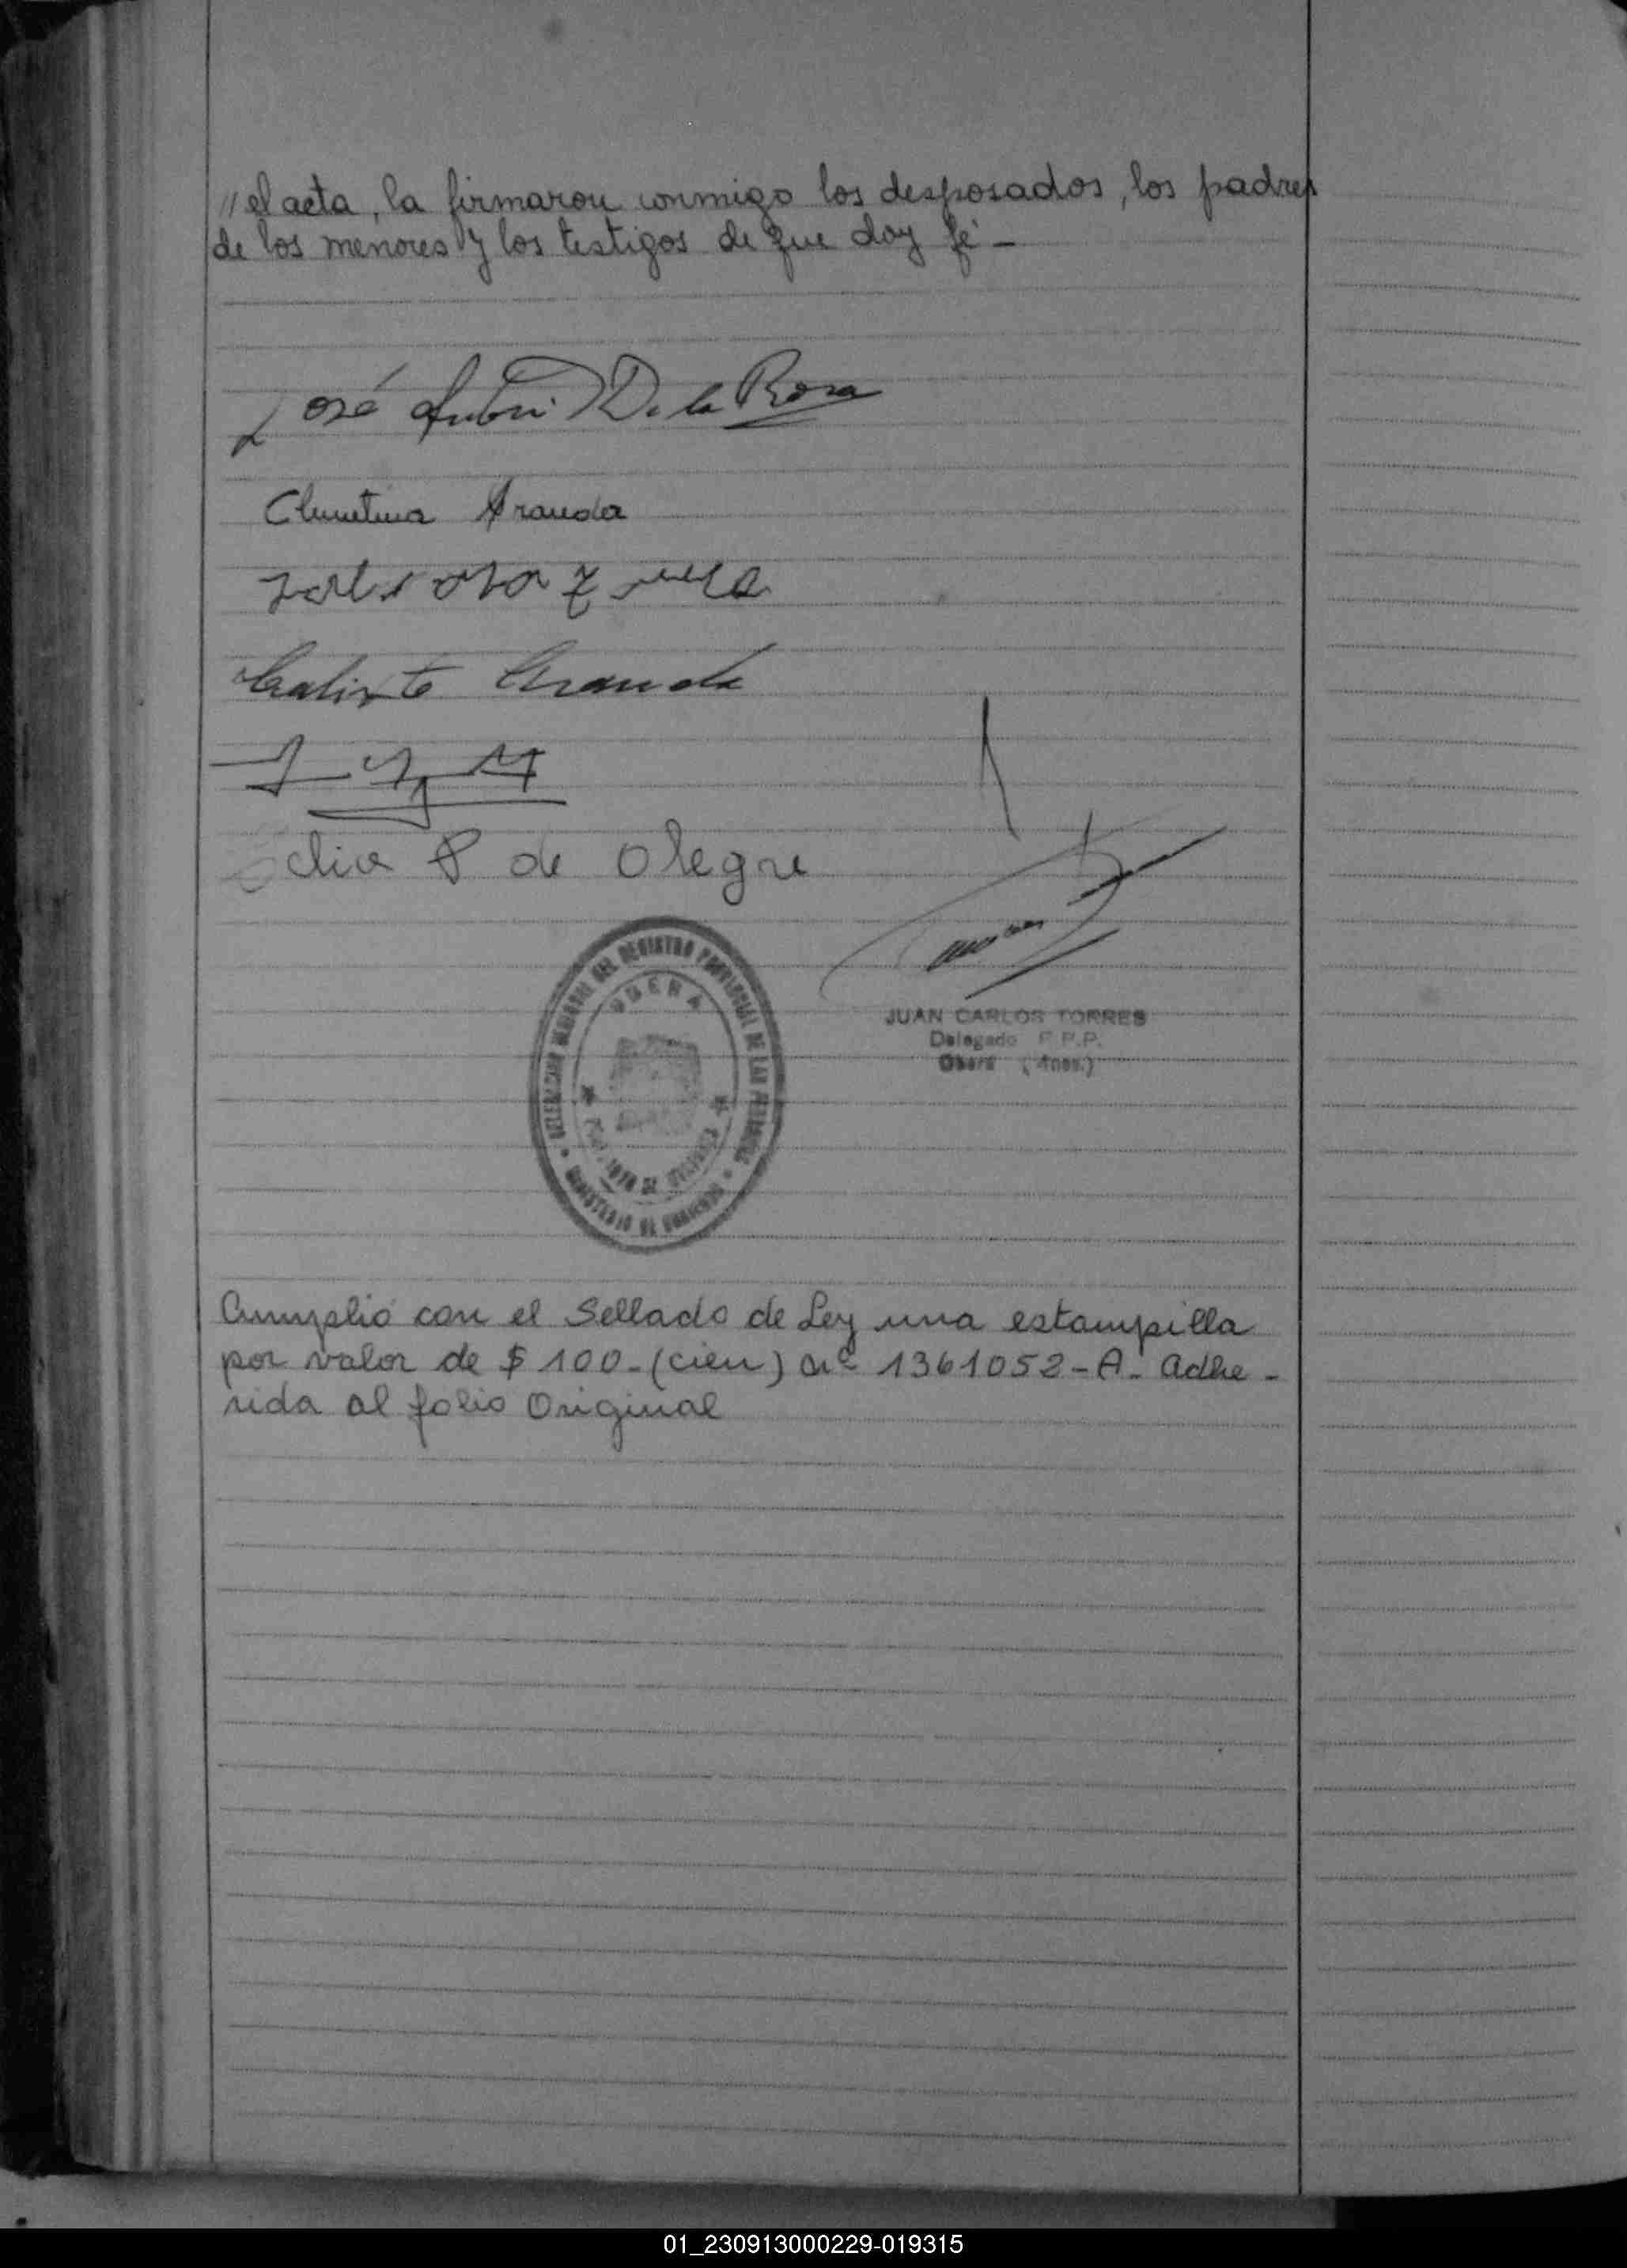 // el acta, la firmaron conmigo los desposados, los padres
de los menores y los testigos de que doy fé -
José De la Rosa
Clementina Aranda
Calixto Aranda
P de Olegre
DELEGACION DEL REGISTRO PROVINCIAL DE LAS PERSONAS
OBERA
MINISTERIO DE GOBIERNO
JUAN CARLOS TORRES
Delegado P.P.P.
Oberá (Mnes.)
Cumplió con el Sellado de Ley una estampilla
por valor de $ 100- (cien) nº 1361052-A- adhe-
rida al folio Original
01_230913000229-019315